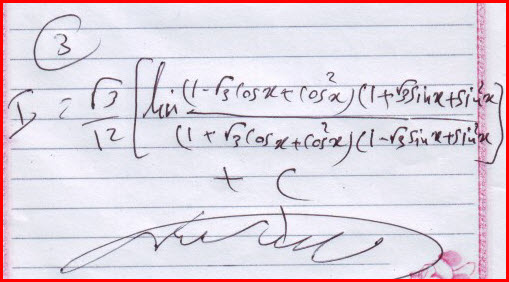 3
I = √3/12 [ln (1-√3cosx+cos²x)(1+√3sinx+sin²x) / (1+√3cosx+cos²x)(1-√3sinx+sin²x)]
+ C